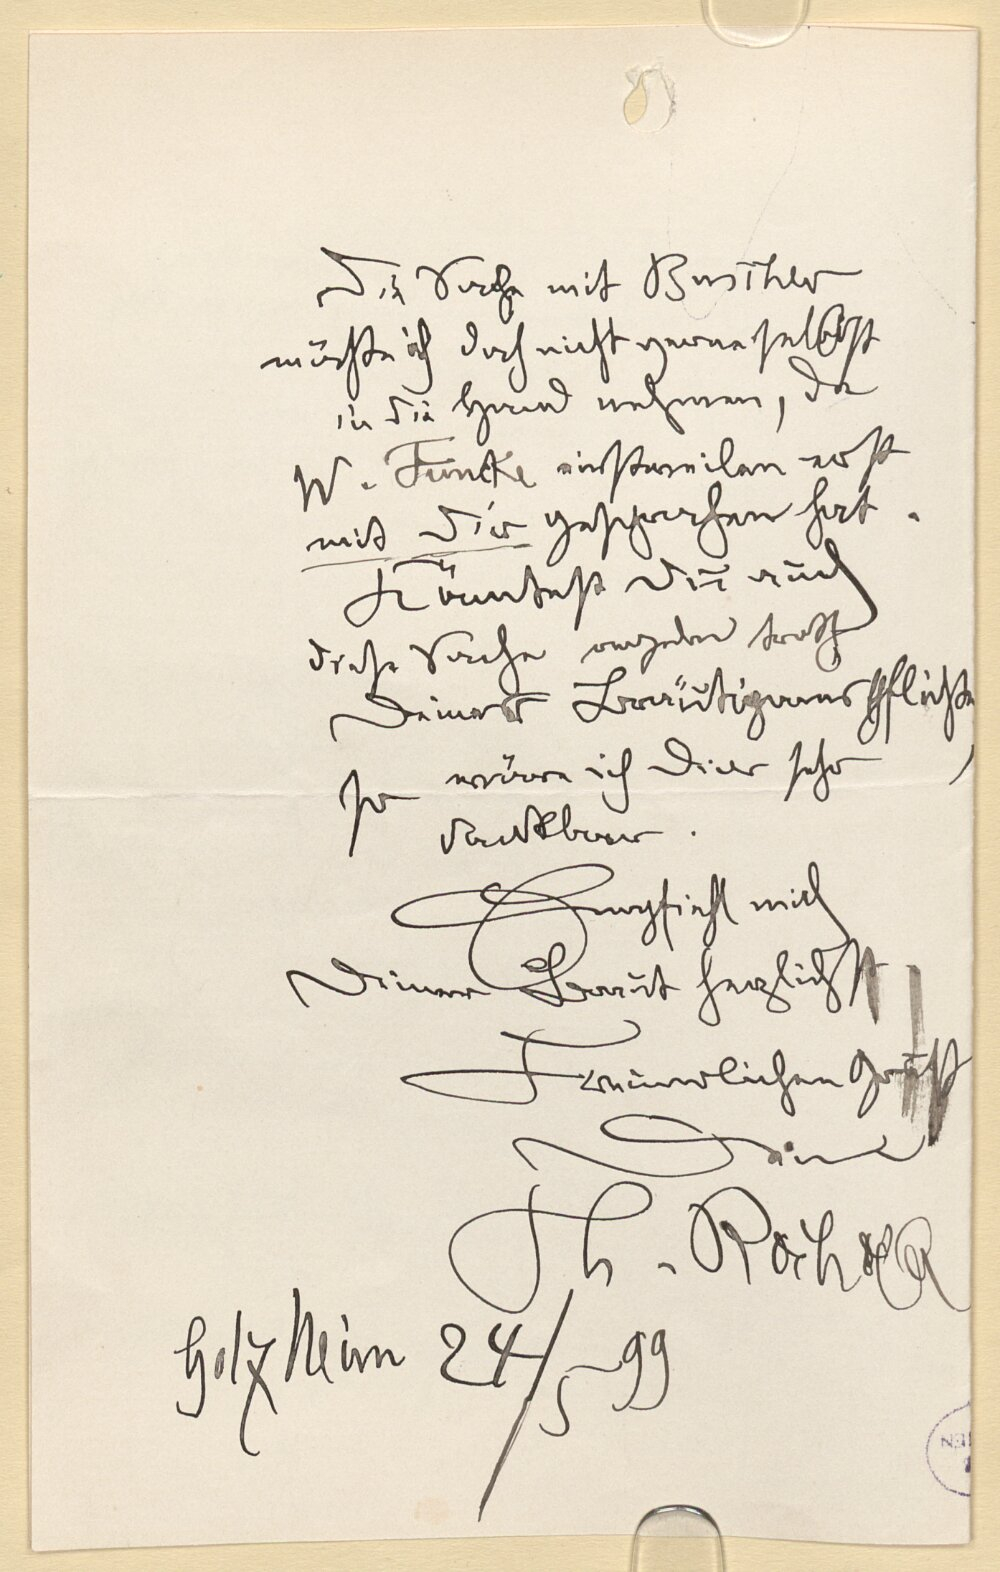 Die Sache mit Buschler
möchte ich doch nicht gerne selbst
in die Hand nehmen, da
W. Funcke einstweilen erst
mit Dir gesprochen hat.
Könntest Du auch
diese Sache regeln trotz
Deiner Bräutigamspflichten,
so wäre ich Dir sehr
dankbar.
Empfiehl mich
Deiner Braut herzlichst
Freundlichen Gruß
Dein
Th. Rocholl
Holzheim 24/5 99